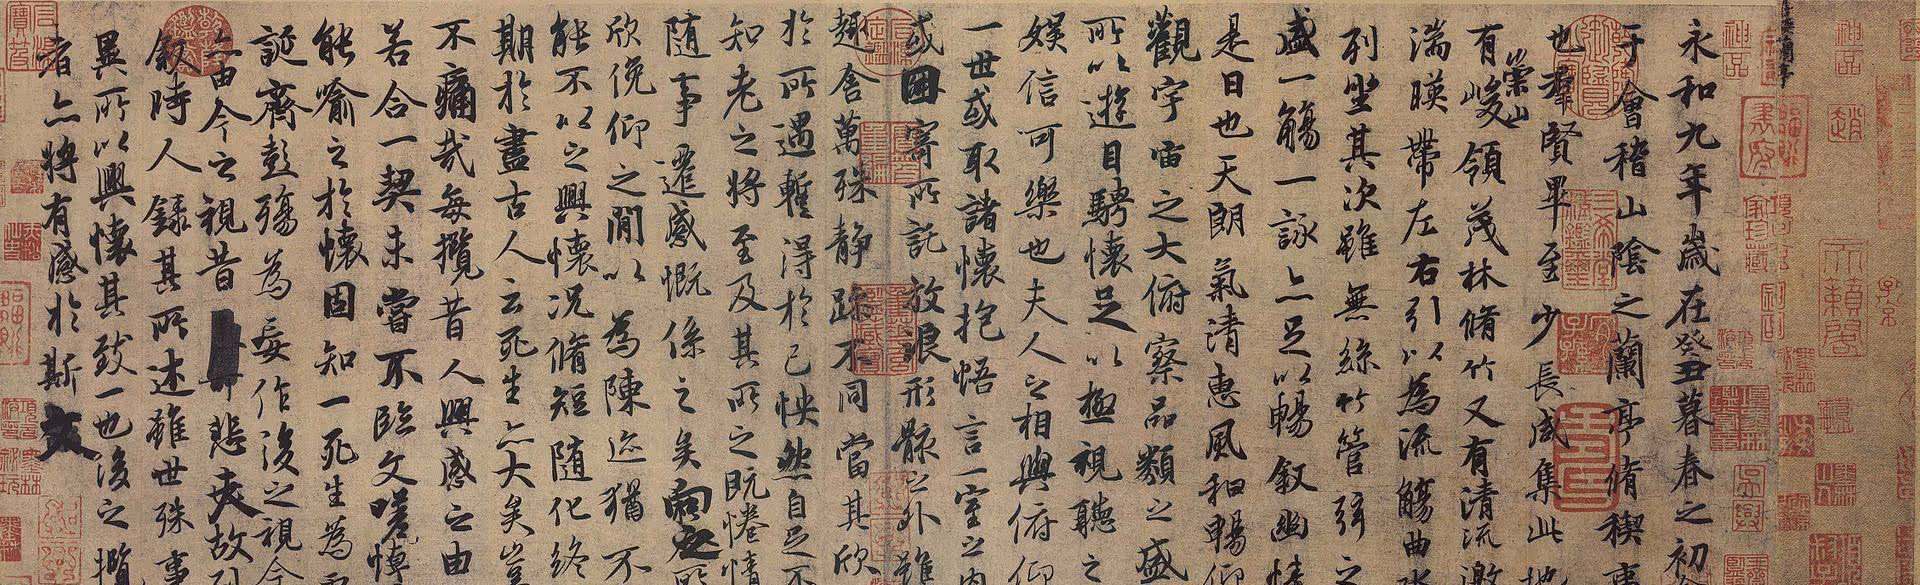 永和九年歲在癸丑暮春之初
于會稽山陰之蘭亭脩稧事
也群賢畢至少長咸集此地
有崇山峻領茂林脩竹又有清流激
湍暎帶左右引以為流觴曲水
列坐其次雖無絲竹管弦之
盛一觴一詠亦足以暢敘幽情
是日也天朗氣清惠風和暢仰
觀宇宙之大俯察品類之盛
所以遊目騁懷足以極視聽之
娛信可樂也夫人之相與俯仰
一世或取諸懷抱悟言一室之內
或因寄所託放浪形骸之外雖
趣舍萬殊靜躁不同當其欣
於所遇暫得於己怏然自足不
知老之將至及其所之既惓情
隨事遷感慨係之矣向之所
欣俛仰之閒以為陳迹猶不
能不以之興懷況脩短隨化終
期於盡古人云死生亦大矣豈
不痛哉每攬昔人興感之由
若合一契未嘗不臨文嗟悼
能喻之於懷固知一死生為
誕齊彭殤為妄作後之視今
亦由今之視昔悲夫故列
敘時人錄其所述雖世殊事
異所以興懷其致一也後之攬
者亦將有感於斯文